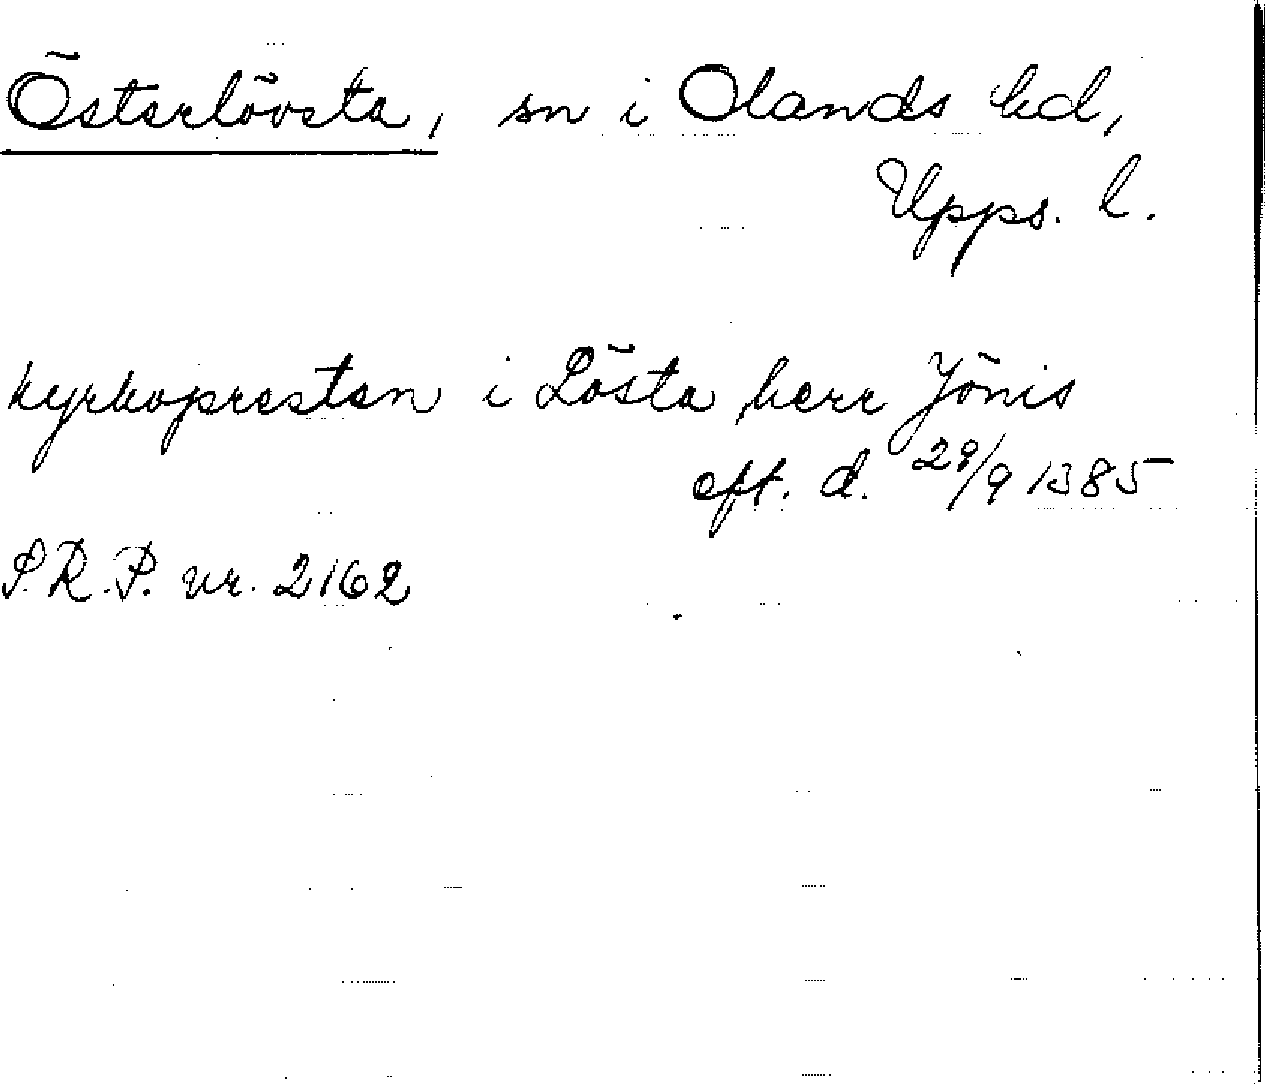 Österlövsta, sn i Olands hd,
Upps. l.
kyrkopresten i Lösta herr Jönis
eft. d. 29/9 1385
S.R.P. nr. 2162